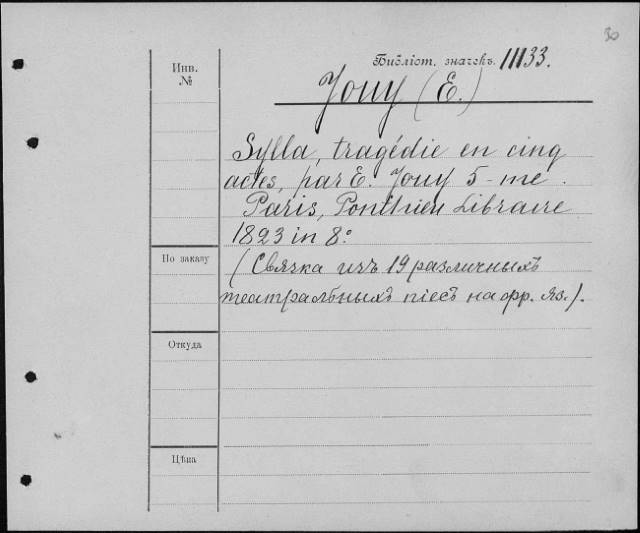 30
Библіот. значекъ. 11133.
Инв.
№
Jouy (E.)
Sylla, tragédie en cinq
actes, par E. Jouy 5-me.
Paris, Ponthieu Libraire
1823 in 8º
По заказу
(Связка изъ 19 различныхъ
театральныхъ піесъ на фр. яз.).
Откуда
Цѣна